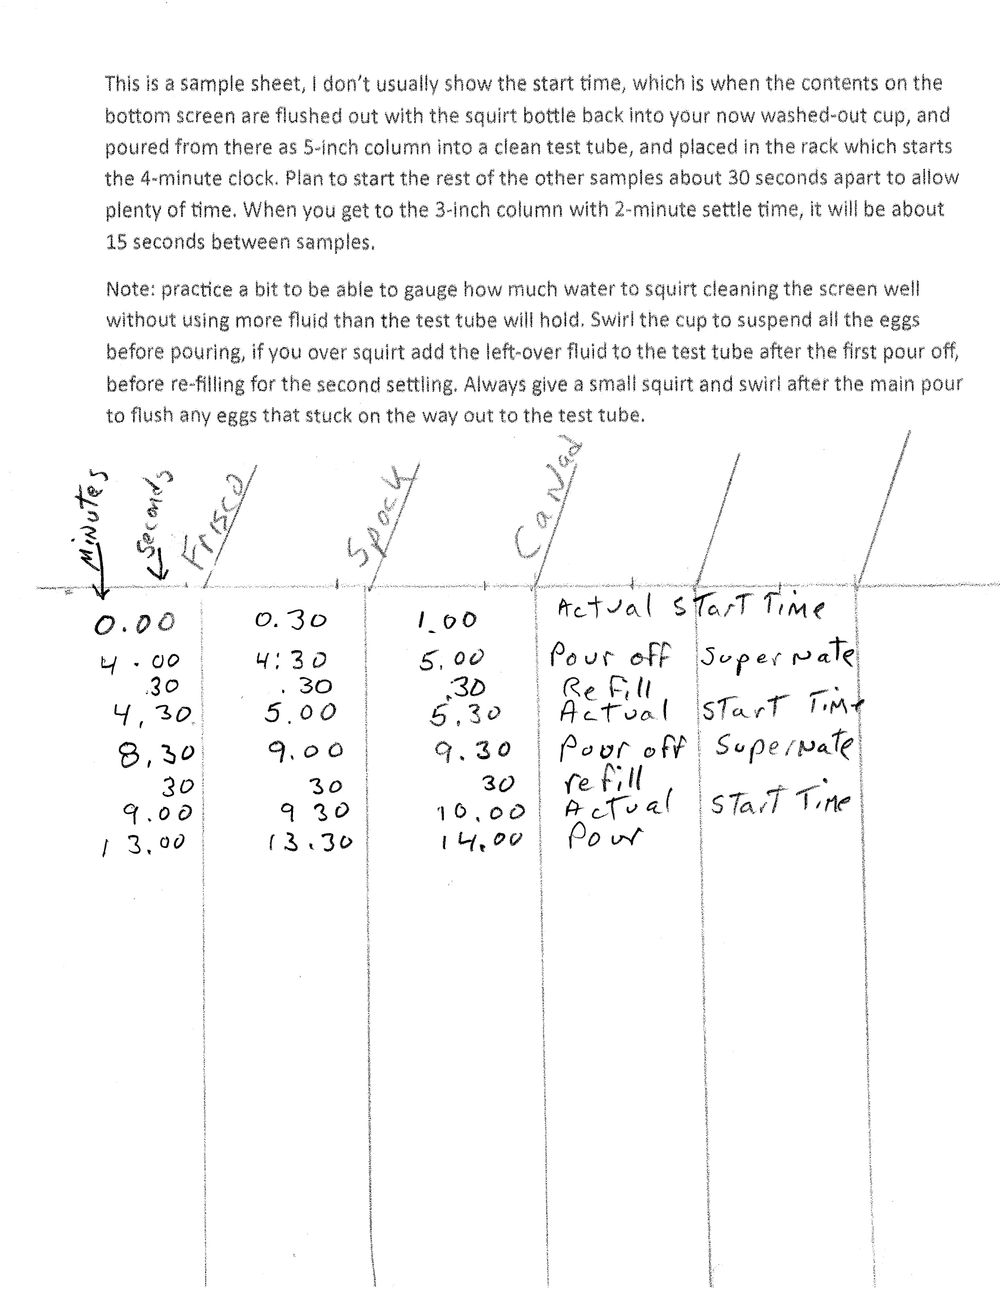 This is a sample sheet, I don't usually show the start time, which is when the contents on the
bottom screen are flushed out with the squirt bottle back into your now washed-out cup, and
poured from there as 5-inch column into a clean test tube, and placed in the rack which starts
the 4-minute clock. Plan to start the rest of the other samples about 30 seconds apart to allow
plenty of time. When you get to the 3-inch column with 2-minute settle time, it will be about
15 seconds between samples.
Note: practice a bit to be able to gauge how much water to squirt cleaning the screen well
without using more fluid than the test tube will hold. Swirl the cup to suspend all the eggs
before pouring, if you over squirt add the left-over fluid to the test tube after the first pour off,
before re-filling for the second settling. Always give a small squirt and swirl after the main pour
to flush any eggs that stuck on the way out to the test tube.
Minutes Seconds Frisco Spock CaNad
0.00 0.30 1.00 Actual START TIME
4.00 4:30 5.00 Pour off SuperNate
.30 .30 .30 Refill
4,30 5.00 5,30 Actual START TIME
8,30 9.00 9.30 Pour off SuperNate
30 30 30 refill
9.00 9 30 10.00 Actual START TIME
13.00 13.30 14.00 Pour